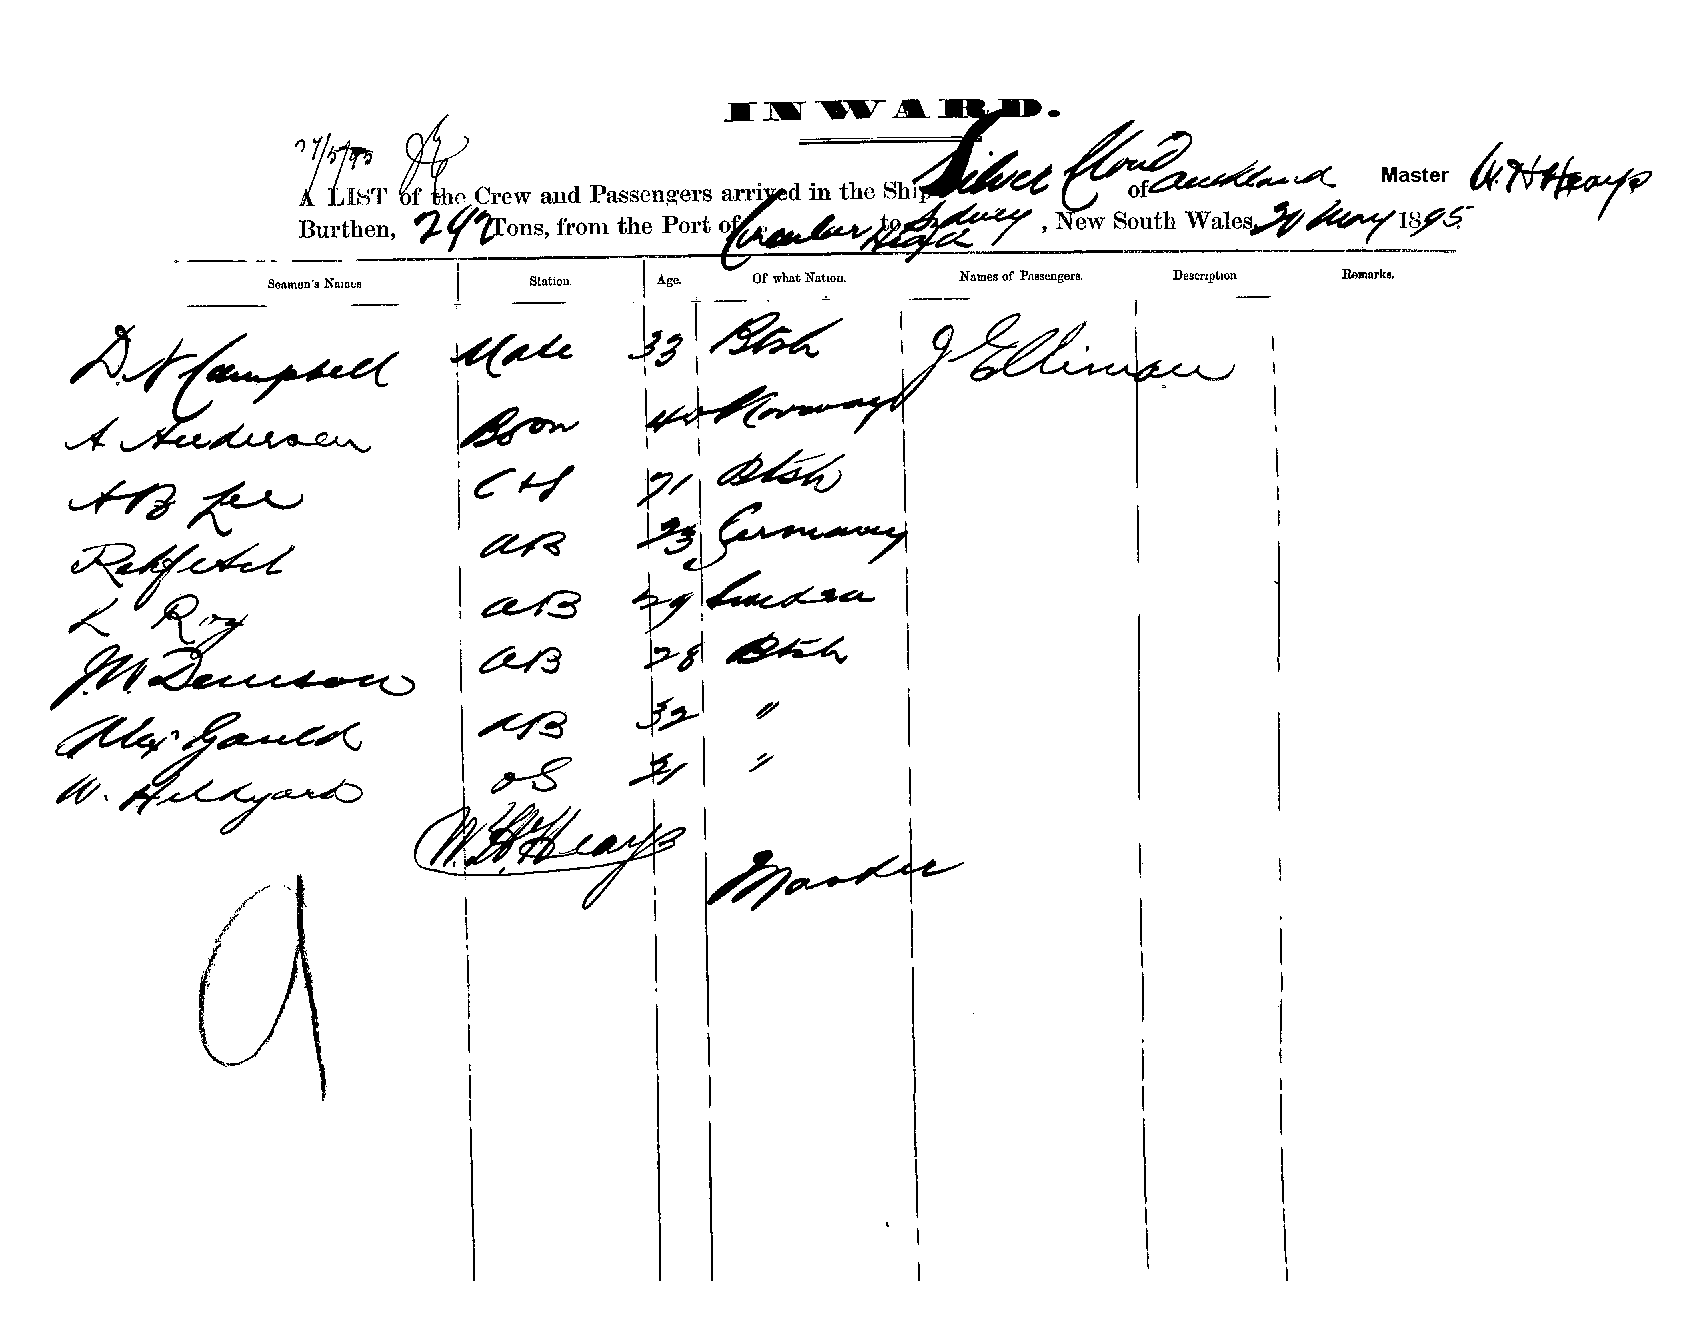 INWARD.
27/5/95
A LIST of the Crew and Passengers arrived in the Ship Silver Cloud of Auckland Master W. H Hearps
Burthen, 247 Tons, from the Port of Circular Head to Sydney, New South Wales, May 1895.
Seamen's Names Station. Age. Of what Nation. Names of Passengers. Description Remarks.
D. N Campbell Mate 33 Btsh J Elliman
A Andersen Bson 40 Norway
A B Lee C & S 71 Btsh
AB 23 Germany
L Roy AB 29 Sweden
J. W. Denison AB 28 Btsh
Alex Gauld AB 32 "
W. Hildyard OS 21 "
W. H. Hearps
Master
9